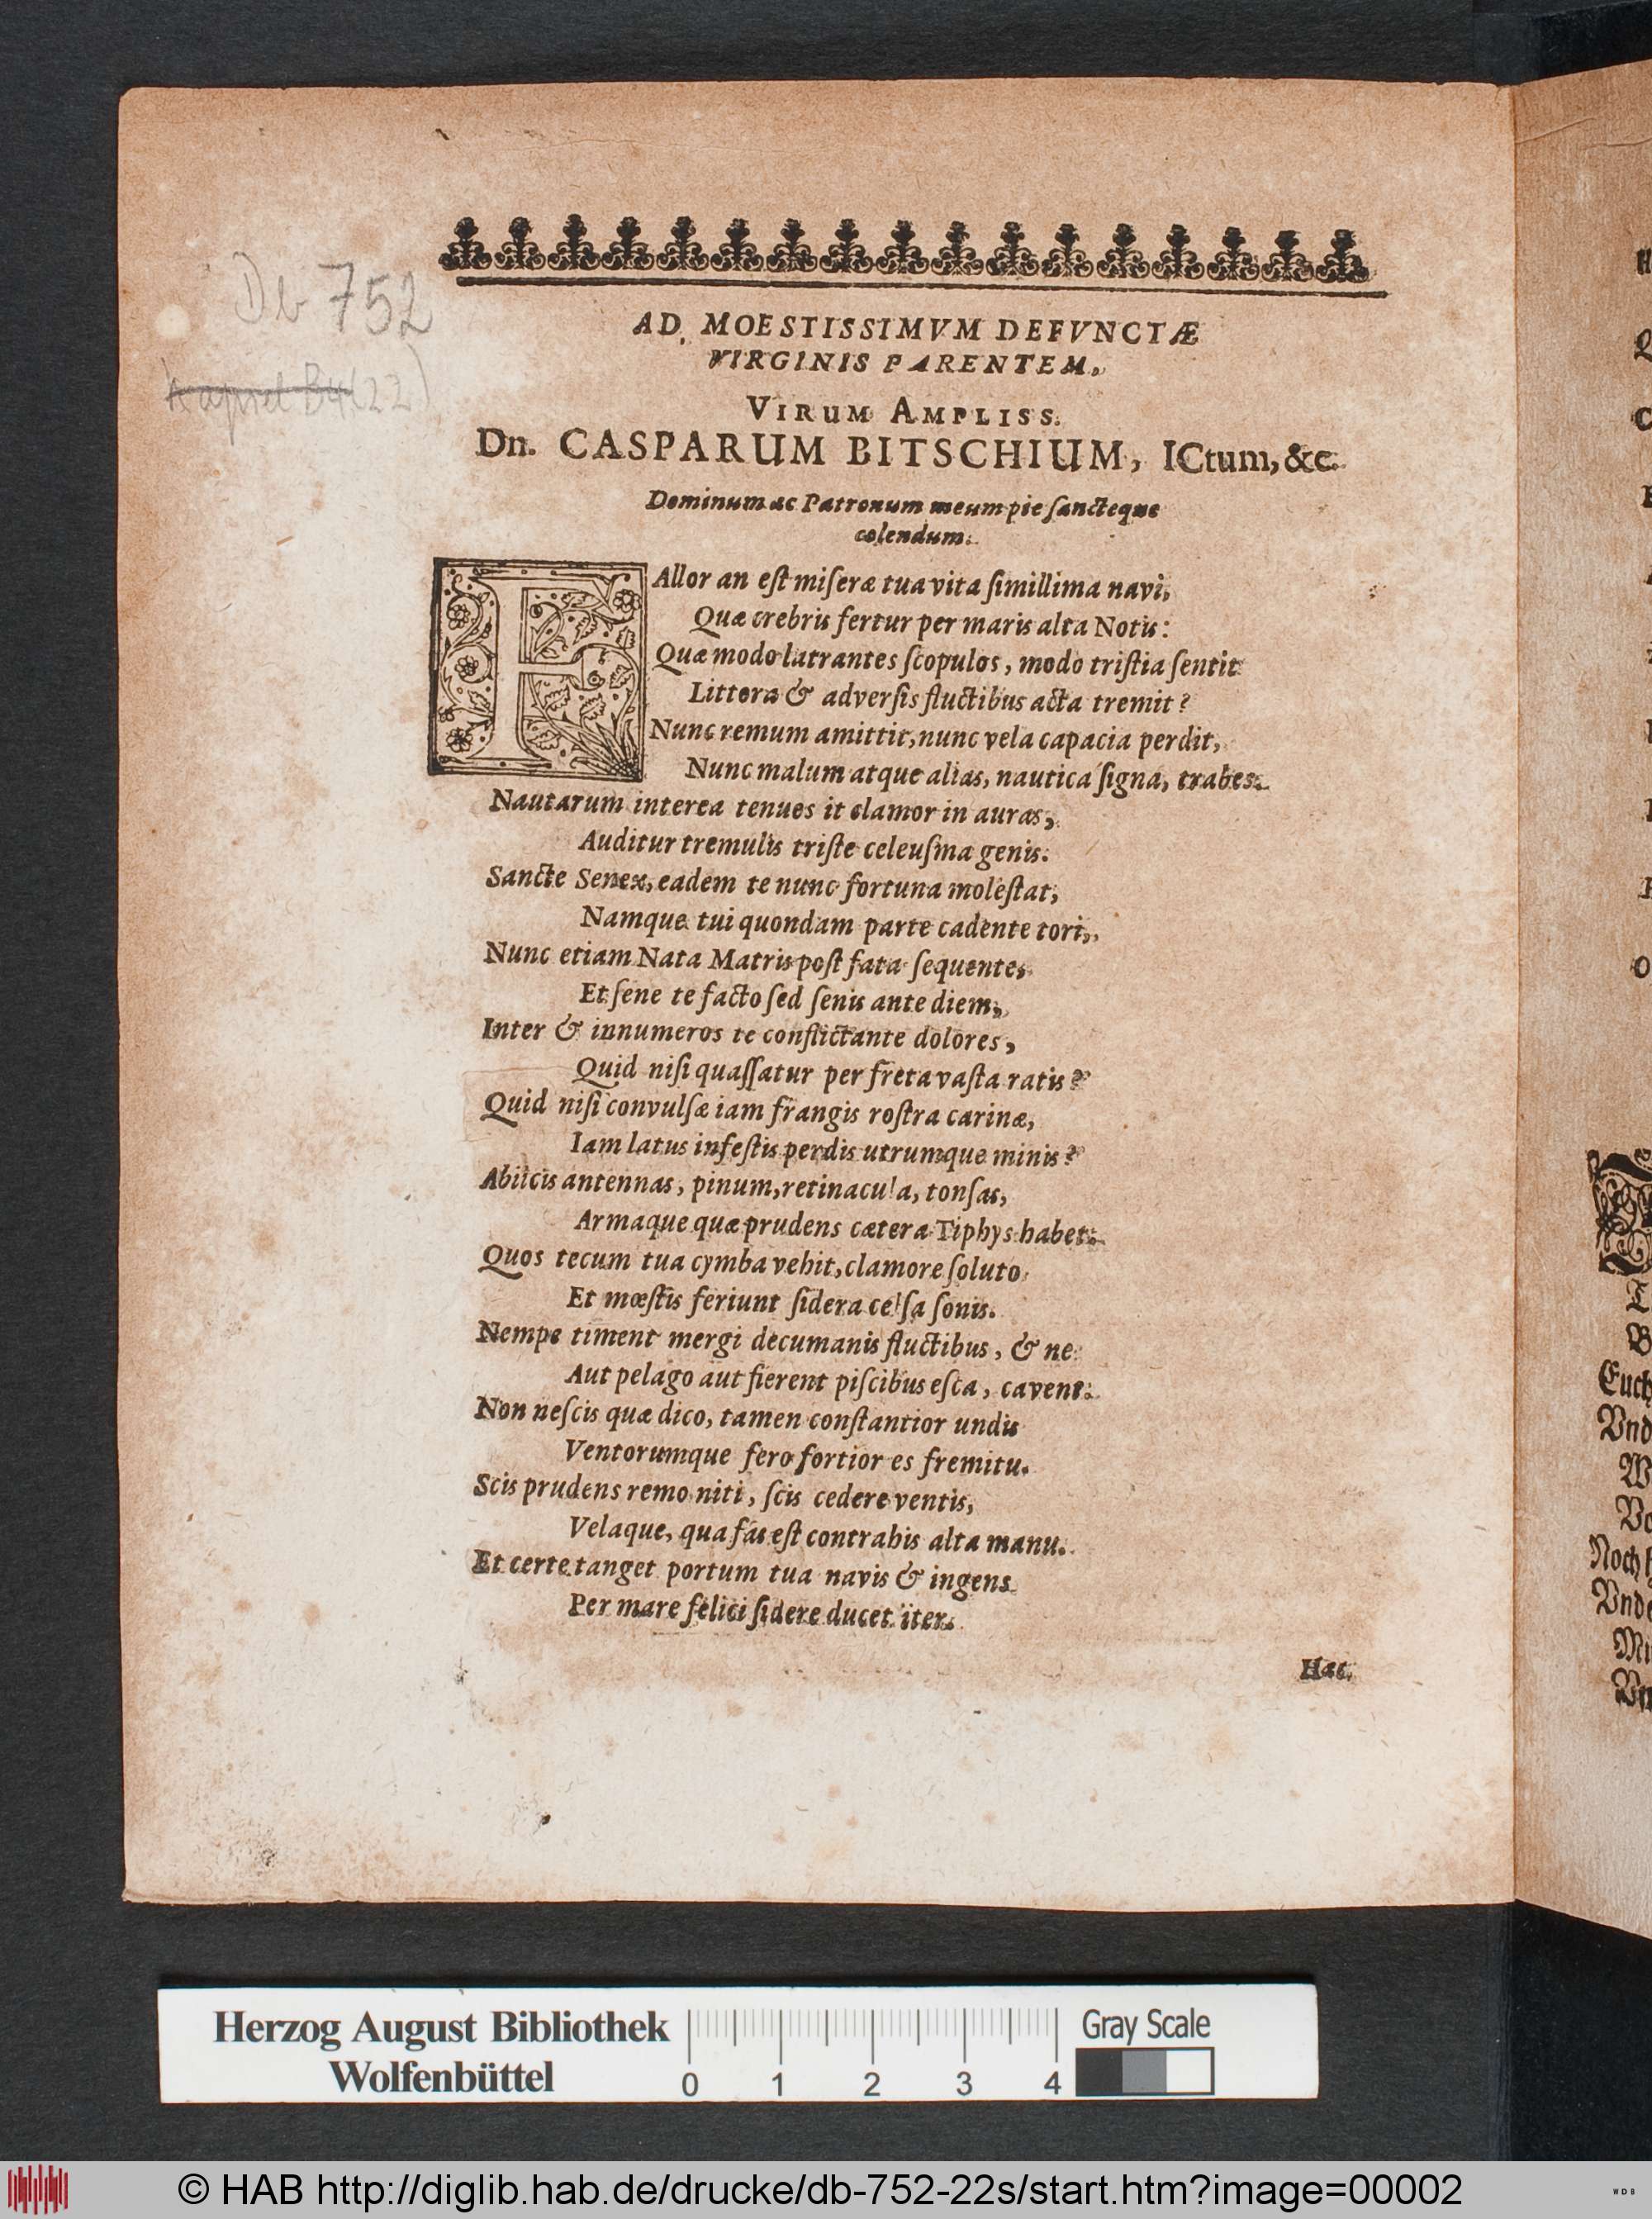 Db 752
Kapsel B4(22)
AD, MOESTISSIMVM DEFVNCTÆ
VIRGINIS PARENTEM,
VIRUM AMPLISS.
Dn. CASPARUM BITSCHIUM, ICtum, &c.
Dominum ac Patronum meum pie ſancteque
colendum.
FAllor an eſt miſeræ tua vita ſimillima navi,
Quæ crebris fertur per maris alta Notis:
Quæ modo latrantes ſcopulos, modo triſtia ſentit
Littora & adverſis fluctibus acta tremit?
Nunc remum amittit, nunc vela capacia perdit,
Nunc malum atque alias, nautica ſigna, trabes.
Nautarum interea tenues it clamor in auras,
Auditur tremulis triſte celeuſma genis.
Sancte Senex, eadem te nunc fortuna moleſtat,
Namque tui quondam parte cadente tori,
Nunc etiam Nata Matris poſt fata ſequente,
Et ſene te facto ſed ſenis ante diem,
Inter & innumeros te conflictante dolores,
Quid niſi quaſſatur per freta vaſta ratis?
Quid niſi convulſæ iam frangis roſtra carinæ,
Iam latus infeſtis perdis utrumque minis?
Abiicis antennas, pinum, retinacula, tonſas,
Armaque quæ prudens cætera Tiphys habet.
Quos tecum tua cymba vehit, clamore ſoluto
Et mœſtis feriunt ſidera celſa ſonis.
Nempe timent mergi decumanis fluctibus, & ne
Aut pelago aut fierent piſcibus eſca, cavent.
Non neſcis quæ dico, tamen conſtantior undis
Ventorumque fero fortior es fremitu.
Scis prudens remo niti, ſcis cedere ventis,
Velaque, qua fas eſt contrahis alta manu.
Et certe tanget portum tua navis & ingens
Per mare felici ſidere ducet iter.
Hæc
Euch
Vnd
Noch
Vnd
Herzog August Bibliothek
Wolfenbüttel
0 1 2 3 4
Gray Scale
© HAB http://diglib.hab.de/drucke/db-752-22s/start.htm?image=00002
WDB